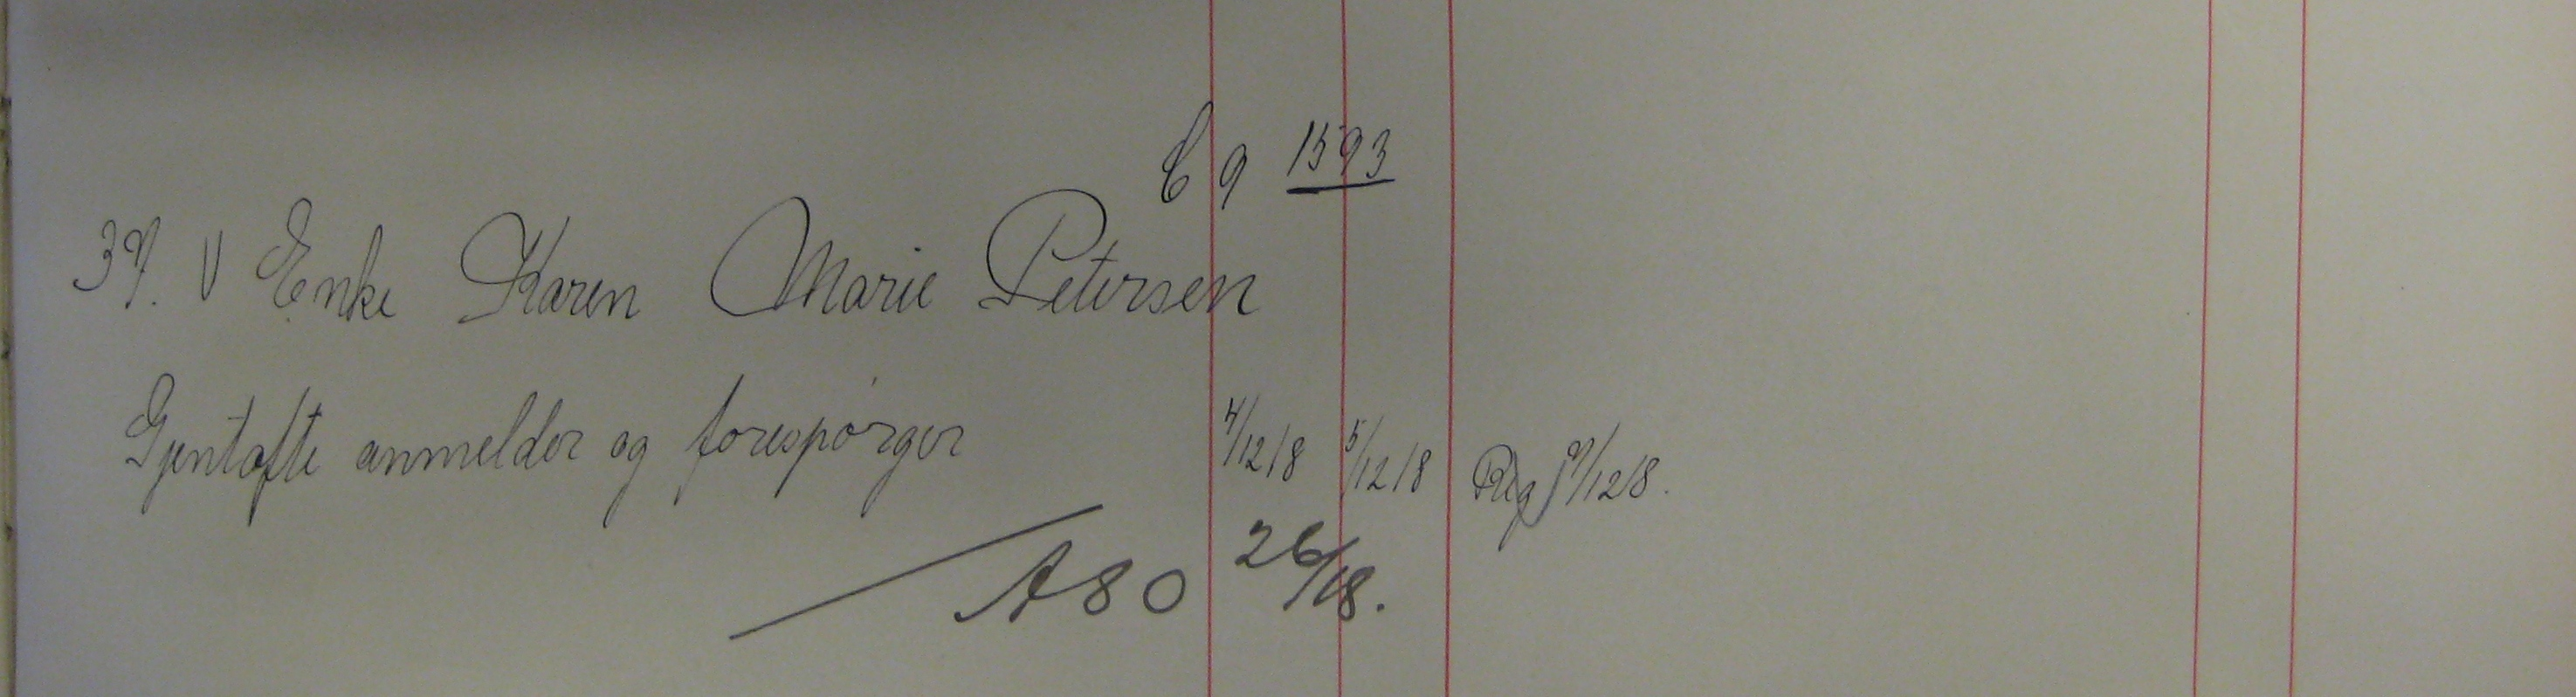 C 9 1593
37. V Enke Karen Marie Petersen
Gjentofte anmelder og forespørger 4/12 18 5/12 18 Reg 7/12 18.
A 80 26/18.